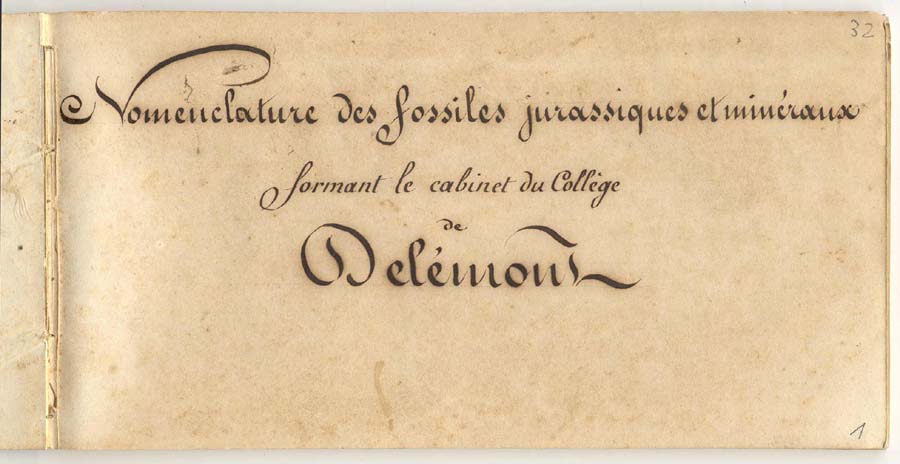 32
Nomenclature des fossiles jurassiques et minéraux
formant le cabinet du Collège
de
Delémont
1